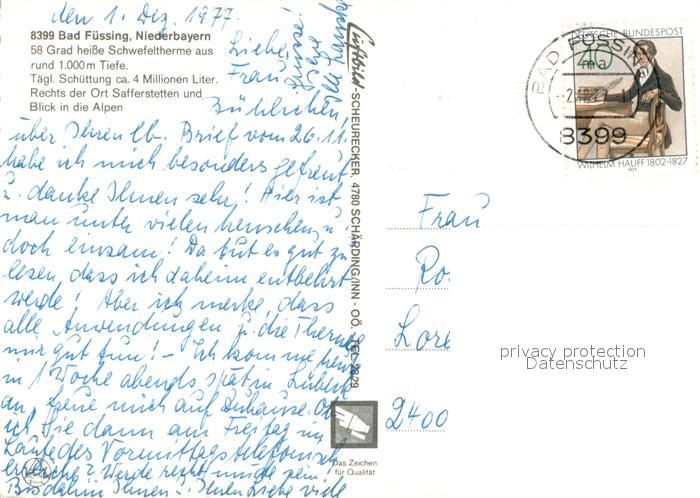 den 1. Dez. 1977.
8399 Bad Füssing, Niederbayern
58 Grad heiße Schwefeltherme aus
rund 1.000 m Tiefe.
Tägl. Schüttung ca. 4 Millionen Liter.
Rechts der Ort Safferstetten und
Blick in die Alpen
Liebe
Frau
über Ihren lb. Brief vom 26.11.
habe ich mich besonders gefreut
u. danke Ihnen sehr! Hier ist
man unter vielen Menschen u.
doch einsam! Da tut es gut zu
lesen, dass ich daheim entbehrt
werde! Aber ich merke, dass
alle Anwendungen u. die Therme
mir gut tun! - Ich komme heute
in 1 Woche abends spät in Lübeck
an, freue mich auf Zuhause. Ob
ich Sie dann am Freitag im
Laufe des Vormittags telefonisch
erreiche? Werde recht müde sein.
Bis dahin Ihnen u. Ihren Lieben viele
Luftbild-SCHEURECKER, 4780 SCHÄRDING/INN - OÖ. TEL. 2829
Das Zeichen
für Qualität
DEUTSCHE BUNDESPOST
BAD FÜSSING
ma
8399
WILHELM HAUFF 1802-1827
1977
Frau
Ro
Lore
2400
privacy protection
Datenschutz